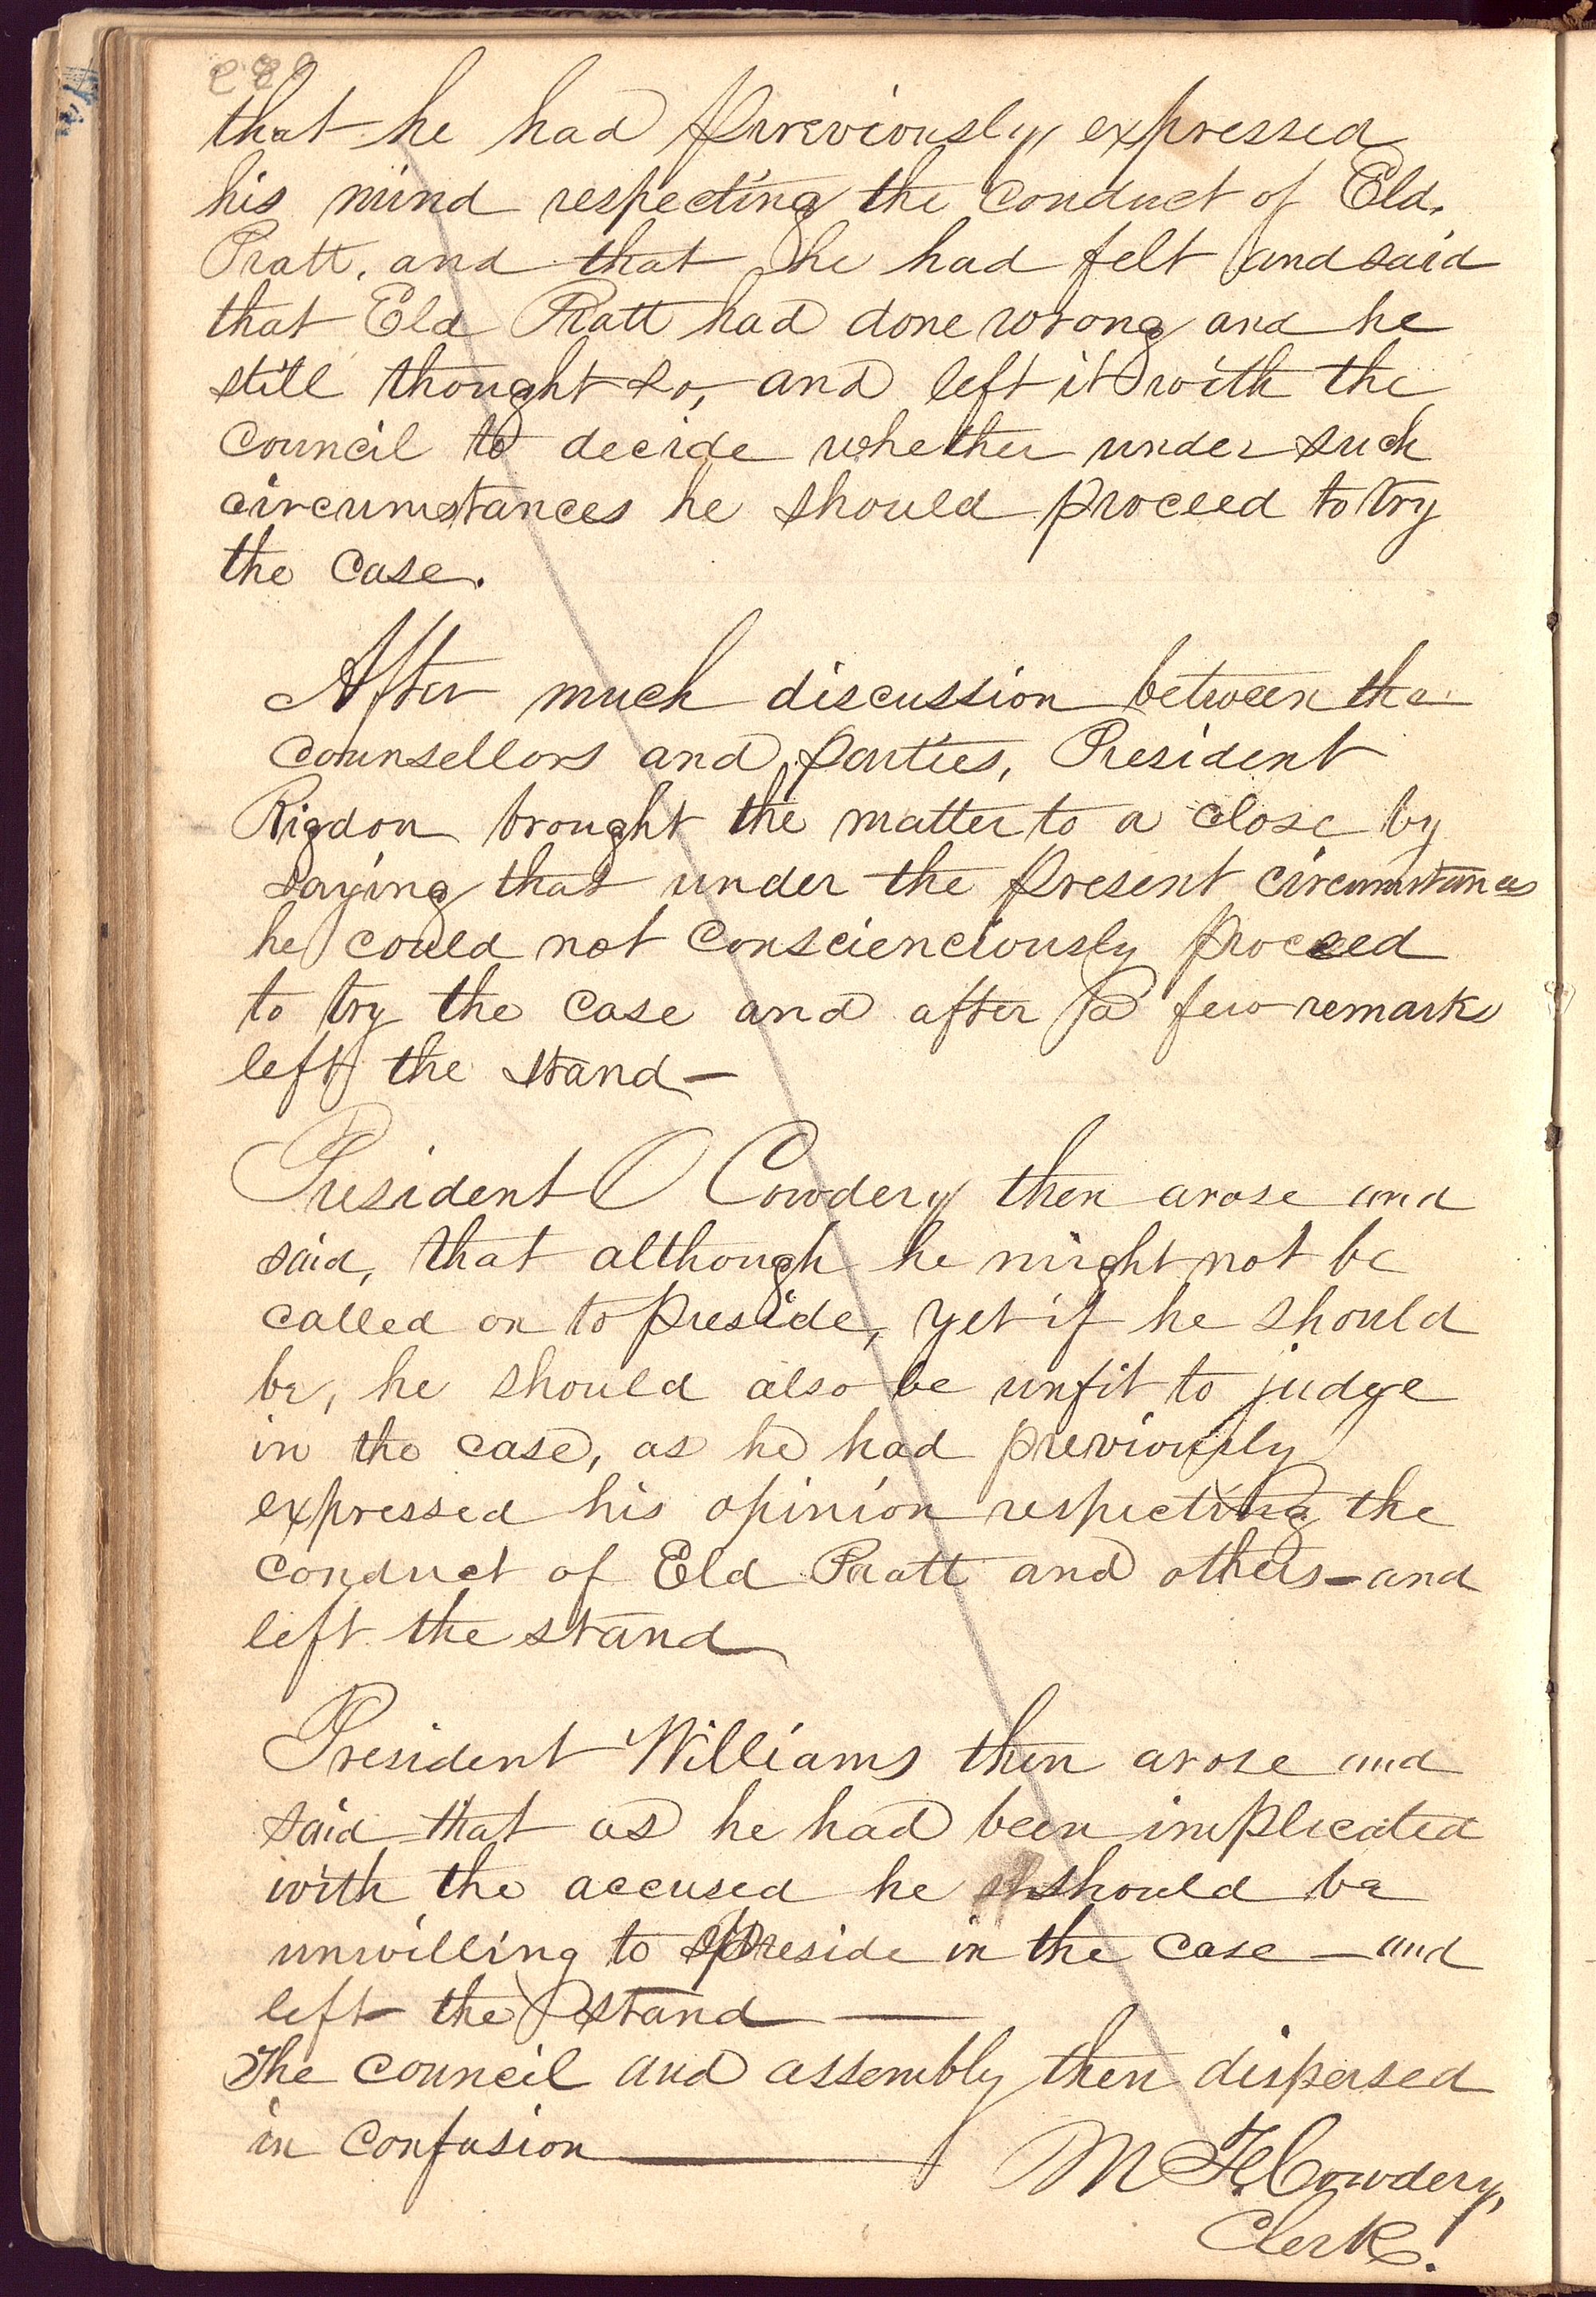 that he had previously expressed
his mind respecting the conduct of Eld.
Pratt, and that he had felt and said
that Eld Pratt had done wrong and he
still thought so, and left it with the
council to decide whether under such
circumstances he should proceed to try
the case.
After much discussion between the
counsellors and parties, President
Rigdon brought the matter to a close by
saying that under the present circumstances
he could not conscienciously proceed
to try the case and after a few remarks
left the stand—
President O Cowdery then arose and
said, that although he might not be
called on to preside, yet if he should
be, he should also be unfit to judge
in the case, as he had previously
expressed his opinion respecting the
conduct of Eld Pratt and others—and
left the stand
President Williams then arose and
said that as he had been implicated
with the accused he should be
unwilling to preside in the case — and
left the stand —
The council and assembly then dispersed
in confusion — M F Cowdery,
Clerk.